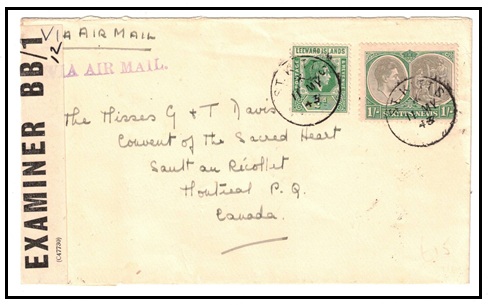 VIA AIR MAIL
12
VIA AIR MAIL.
EXAMINER BB/1
(C47730)
LEEWARD ISLANDS
ST. KITTS
MY
43
ST. KITTS
MY
43
1/-
ST KITTS-NEVIS
1/-
The Misses G & T Davis
Convent of the Sacred Heart
Sault au Récollet
Montreal P.Q.
Canada.